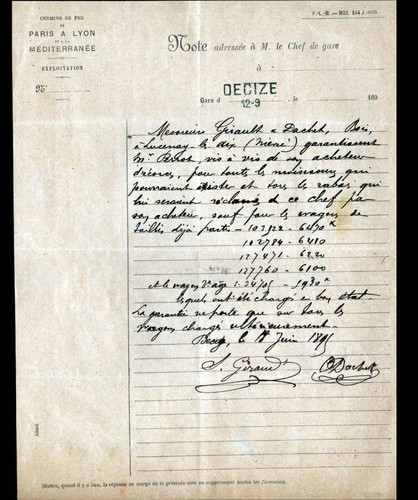 CHEMINS DE FER
DE
PARIS A LYON
ET A LA
MÉDITERRANÉE
EXPLOITATION
P.-L.-M.
Note adressée à M. le Chef de gare
à
DECIZE
Gare d 12-9 , le 189
Messieurs Girault & Dachet, Bois,
à Lucenay-le dix (Nièvre) garantissent
Mr Perrot, vis à vis de son acheteur
d'écorces, pour toute les
pourraient exister et tous les rabais qui
lui seraient réclamés de ce chef par
son acheteur, sauf pour les wagons de
déjà partis - 6470 K
102784 - 6410
127471 - 6220
127760 - 6100
& le wagon
lesquels ont été chargés en bon état.
La garantie ne porte que sur tous les
wagons chargés ultérieurement
le Juin
Girault Dachet
(Mettre, quand il y a lieu, la réponse en marge de la présente note en supprimant toutes les formules).